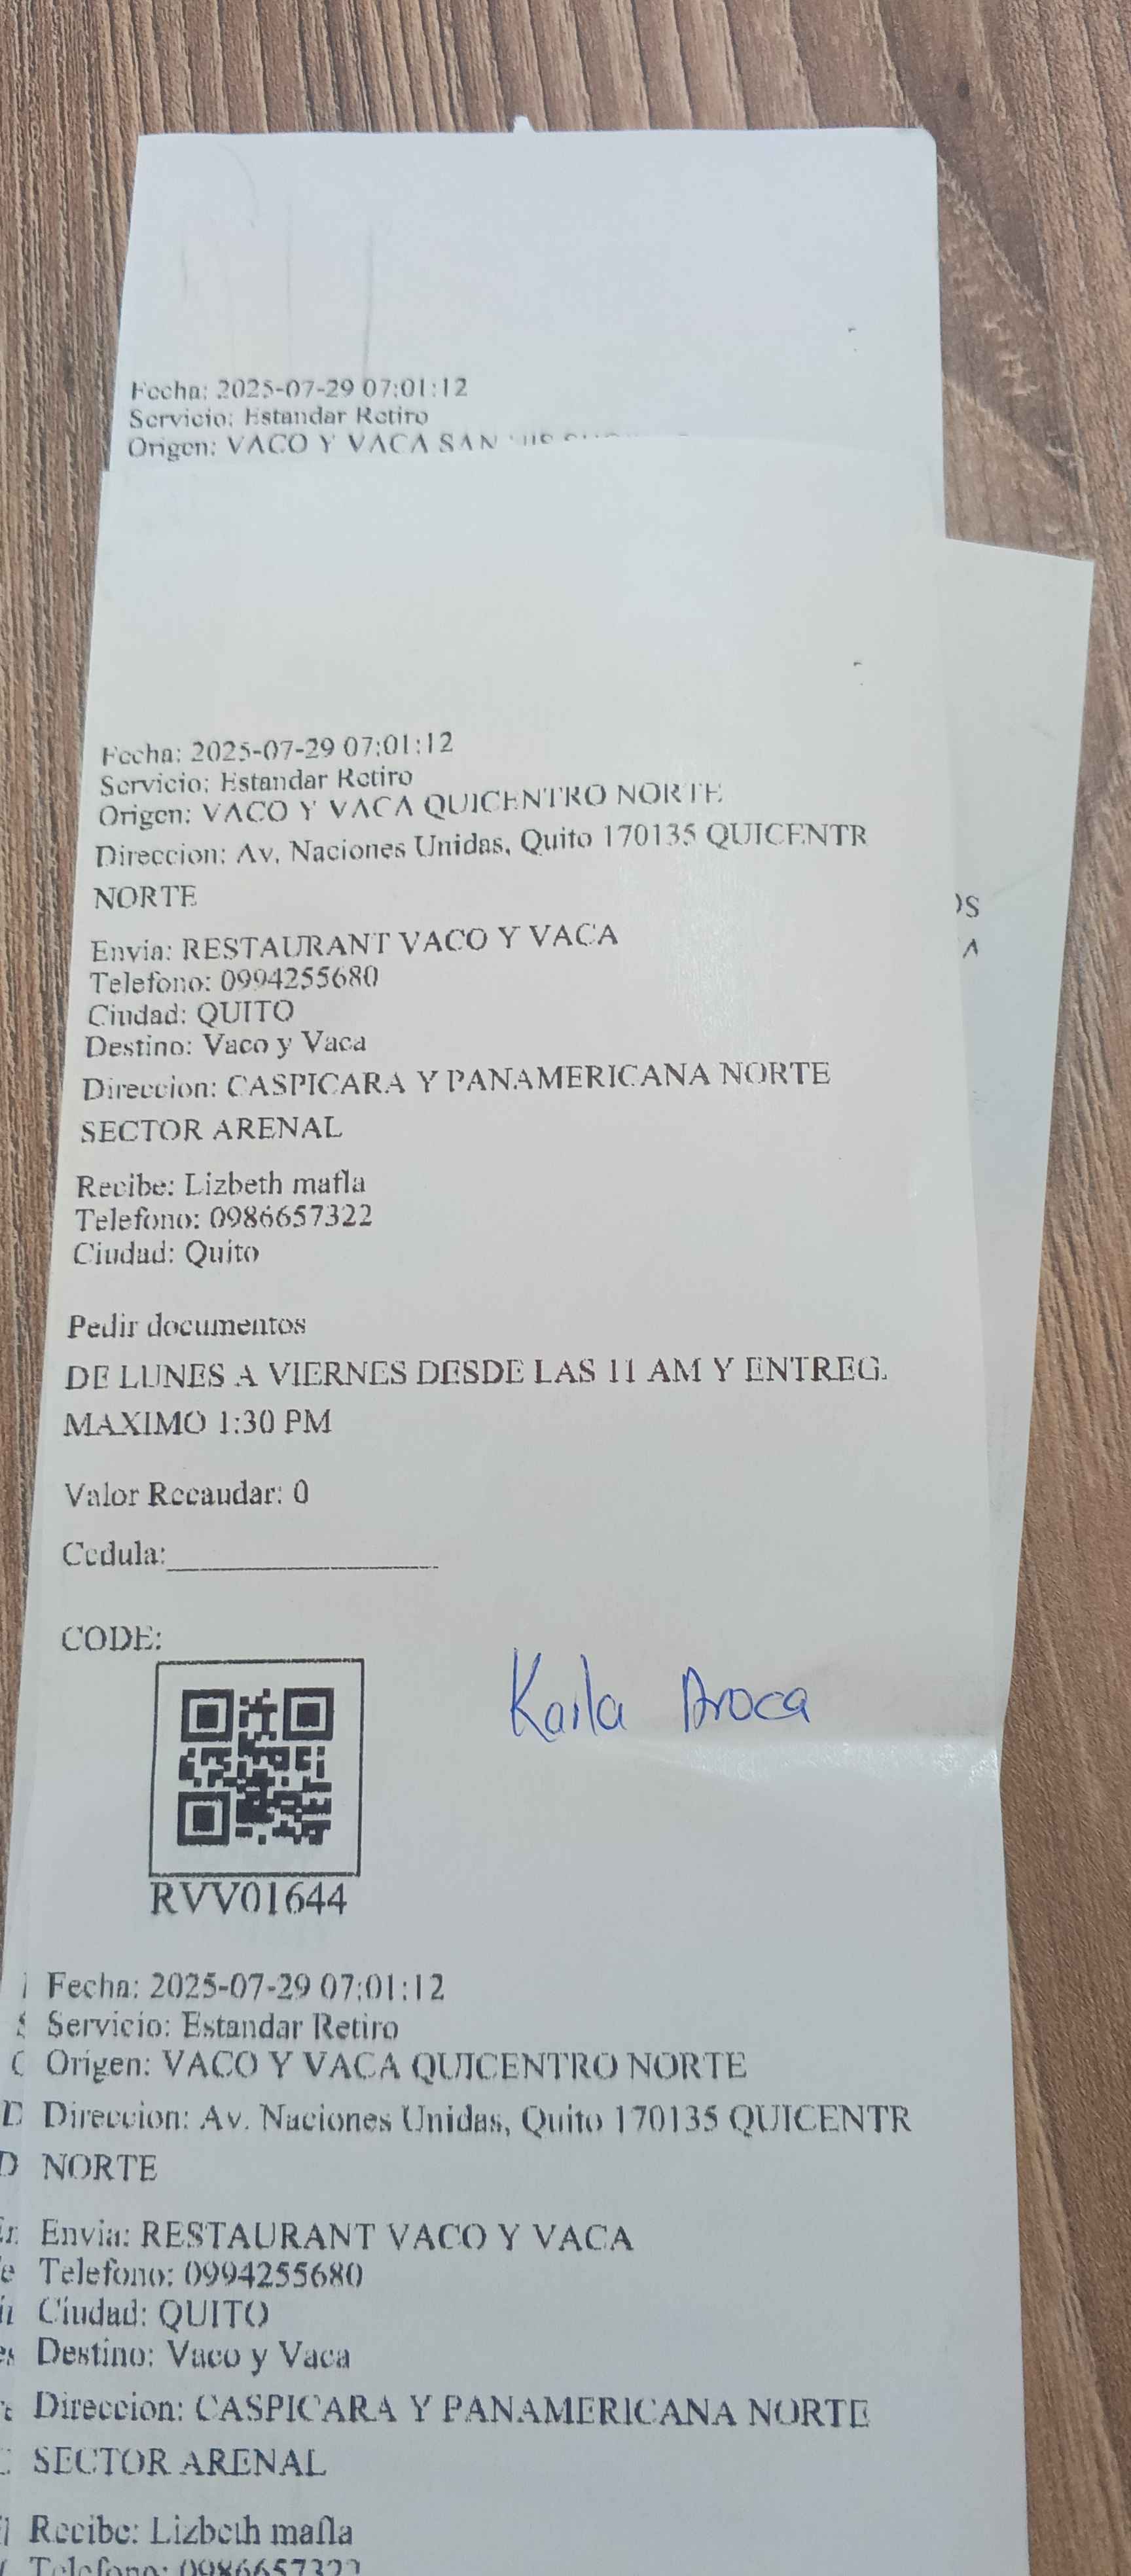 Fecha: 2025-07-29 07:01:12
Servicio: Estandar Retiro
Origen: VACO Y VACA SAN
Fecha: 2025-07-29 07:01:12
Servicio: Estandar Retiro
Origen: VACO Y VACA QUICENTRO NORTE
Direccion: Av. Naciones Unidas, Quito 170135 QUICENTR
NORTE
Envia: RESTAURANT VACO Y VACA
Telefono: 0994255680
Ciudad: QUITO
Destino: Vaco y Vaca
Direccion: CASPICARA Y PANAMERICANA NORTE
SECTOR ARENAL
Recibe: Lizbeth mafla
Telefono: 0986657322
Ciudad: Quito
Pedir documentos
DE LUNES A VIERNES DESDE LAS 11 AM Y ENTREG.
MAXIMO 1:30 PM
Valor Recaudar: 0
Cedula:
CODE:
Karla Aroca
RVV01644
Fecha: 2025-07-29 07:01:12
Servicio: Estandar Retiro
Origen: VACO Y VACA QUICENTRO NORTE
Direccion: Av. Naciones Unidas, Quito 170135 QUICENTR
NORTE
Envia: RESTAURANT VACO Y VACA
Telefono: 0994255680
Ciudad: QUITO
Destino: Vaco y Vaca
Direccion: CASPICARA Y PANAMERICANA NORTE
SECTOR ARENAL
Recibe: Lizbeth mafla
Telefono: 0986657322